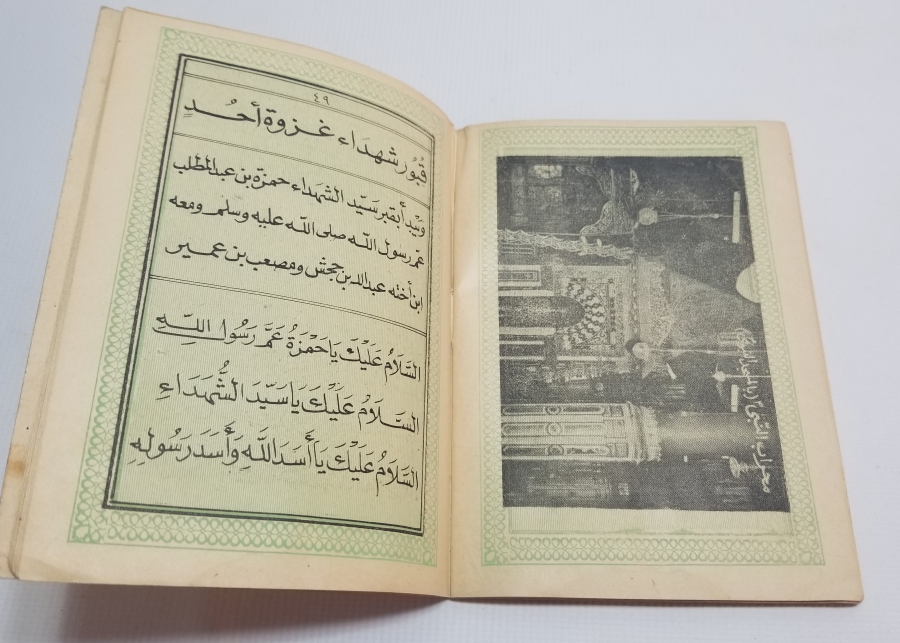 ٤٩
قُبُور شهداء غزوة أحُدٍ
ويَبدأ بقبر سَيّد الشهداء حمزة بن عبد المطلب
عم رسول الله صلى الله عليه وسلم ومعه
ابن أخته عبدالله بن جحش ومصعب بن عمير
السَّلَامُ عَلَيْكَ يَا حَمْزَةُ عَمَّ رَسُولِ اللهِ
السَّلَامُ عَلَيْكَ يَا سَيِّدَ الشُّهَدَاءِ
السَّلَامُ عَلَيْكَ يَا أَسَدَ اللهِ وَأَسَدَ رَسُولِهِ
محراب النبي